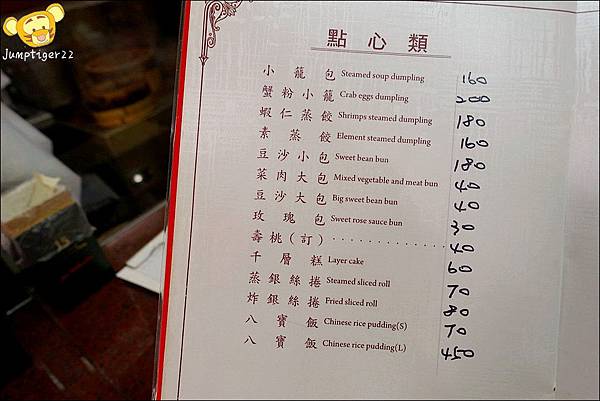 Jumptiger22
點心類
小籠包 Steamed soup dumpling 160
蟹粉小籠 Crab eggs dumpling 200
蝦仁蒸餃 Shrimps steamed dumpling 180
素蒸餃 Element steamed dumpling 160
豆沙小包 Sweet bean bun 180
菜肉大包 Mixed vegetable and meat bun 40
豆沙大包 Big sweet bean bun 40
玫瑰包 Sweet rose sauce bun 30
壽桃(訂)··············· 40
千層糕 Layer cake 60
蒸銀絲捲 Steamed sliced roll 70
炸銀絲捲 Fried sliced roll 80
八寶飯 Chinese rice pudding(S) 70
八寶飯 Chinese rice pudding(L) 450